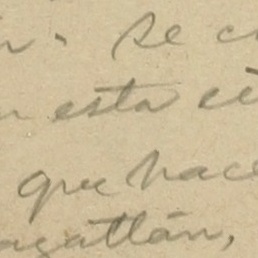 n. Se c
n esta ci
que hace
acatlán,